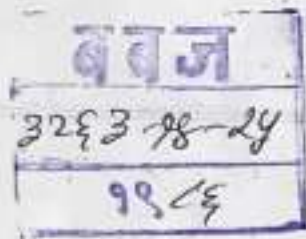 ब ब ज
३२६३ १४-२५
१९८६